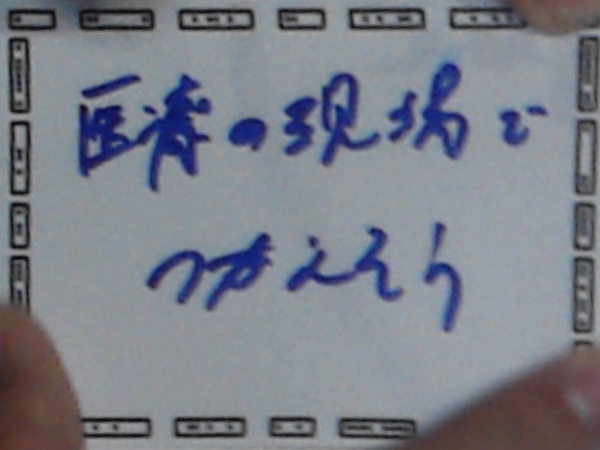 医療の現場で
つかえそう